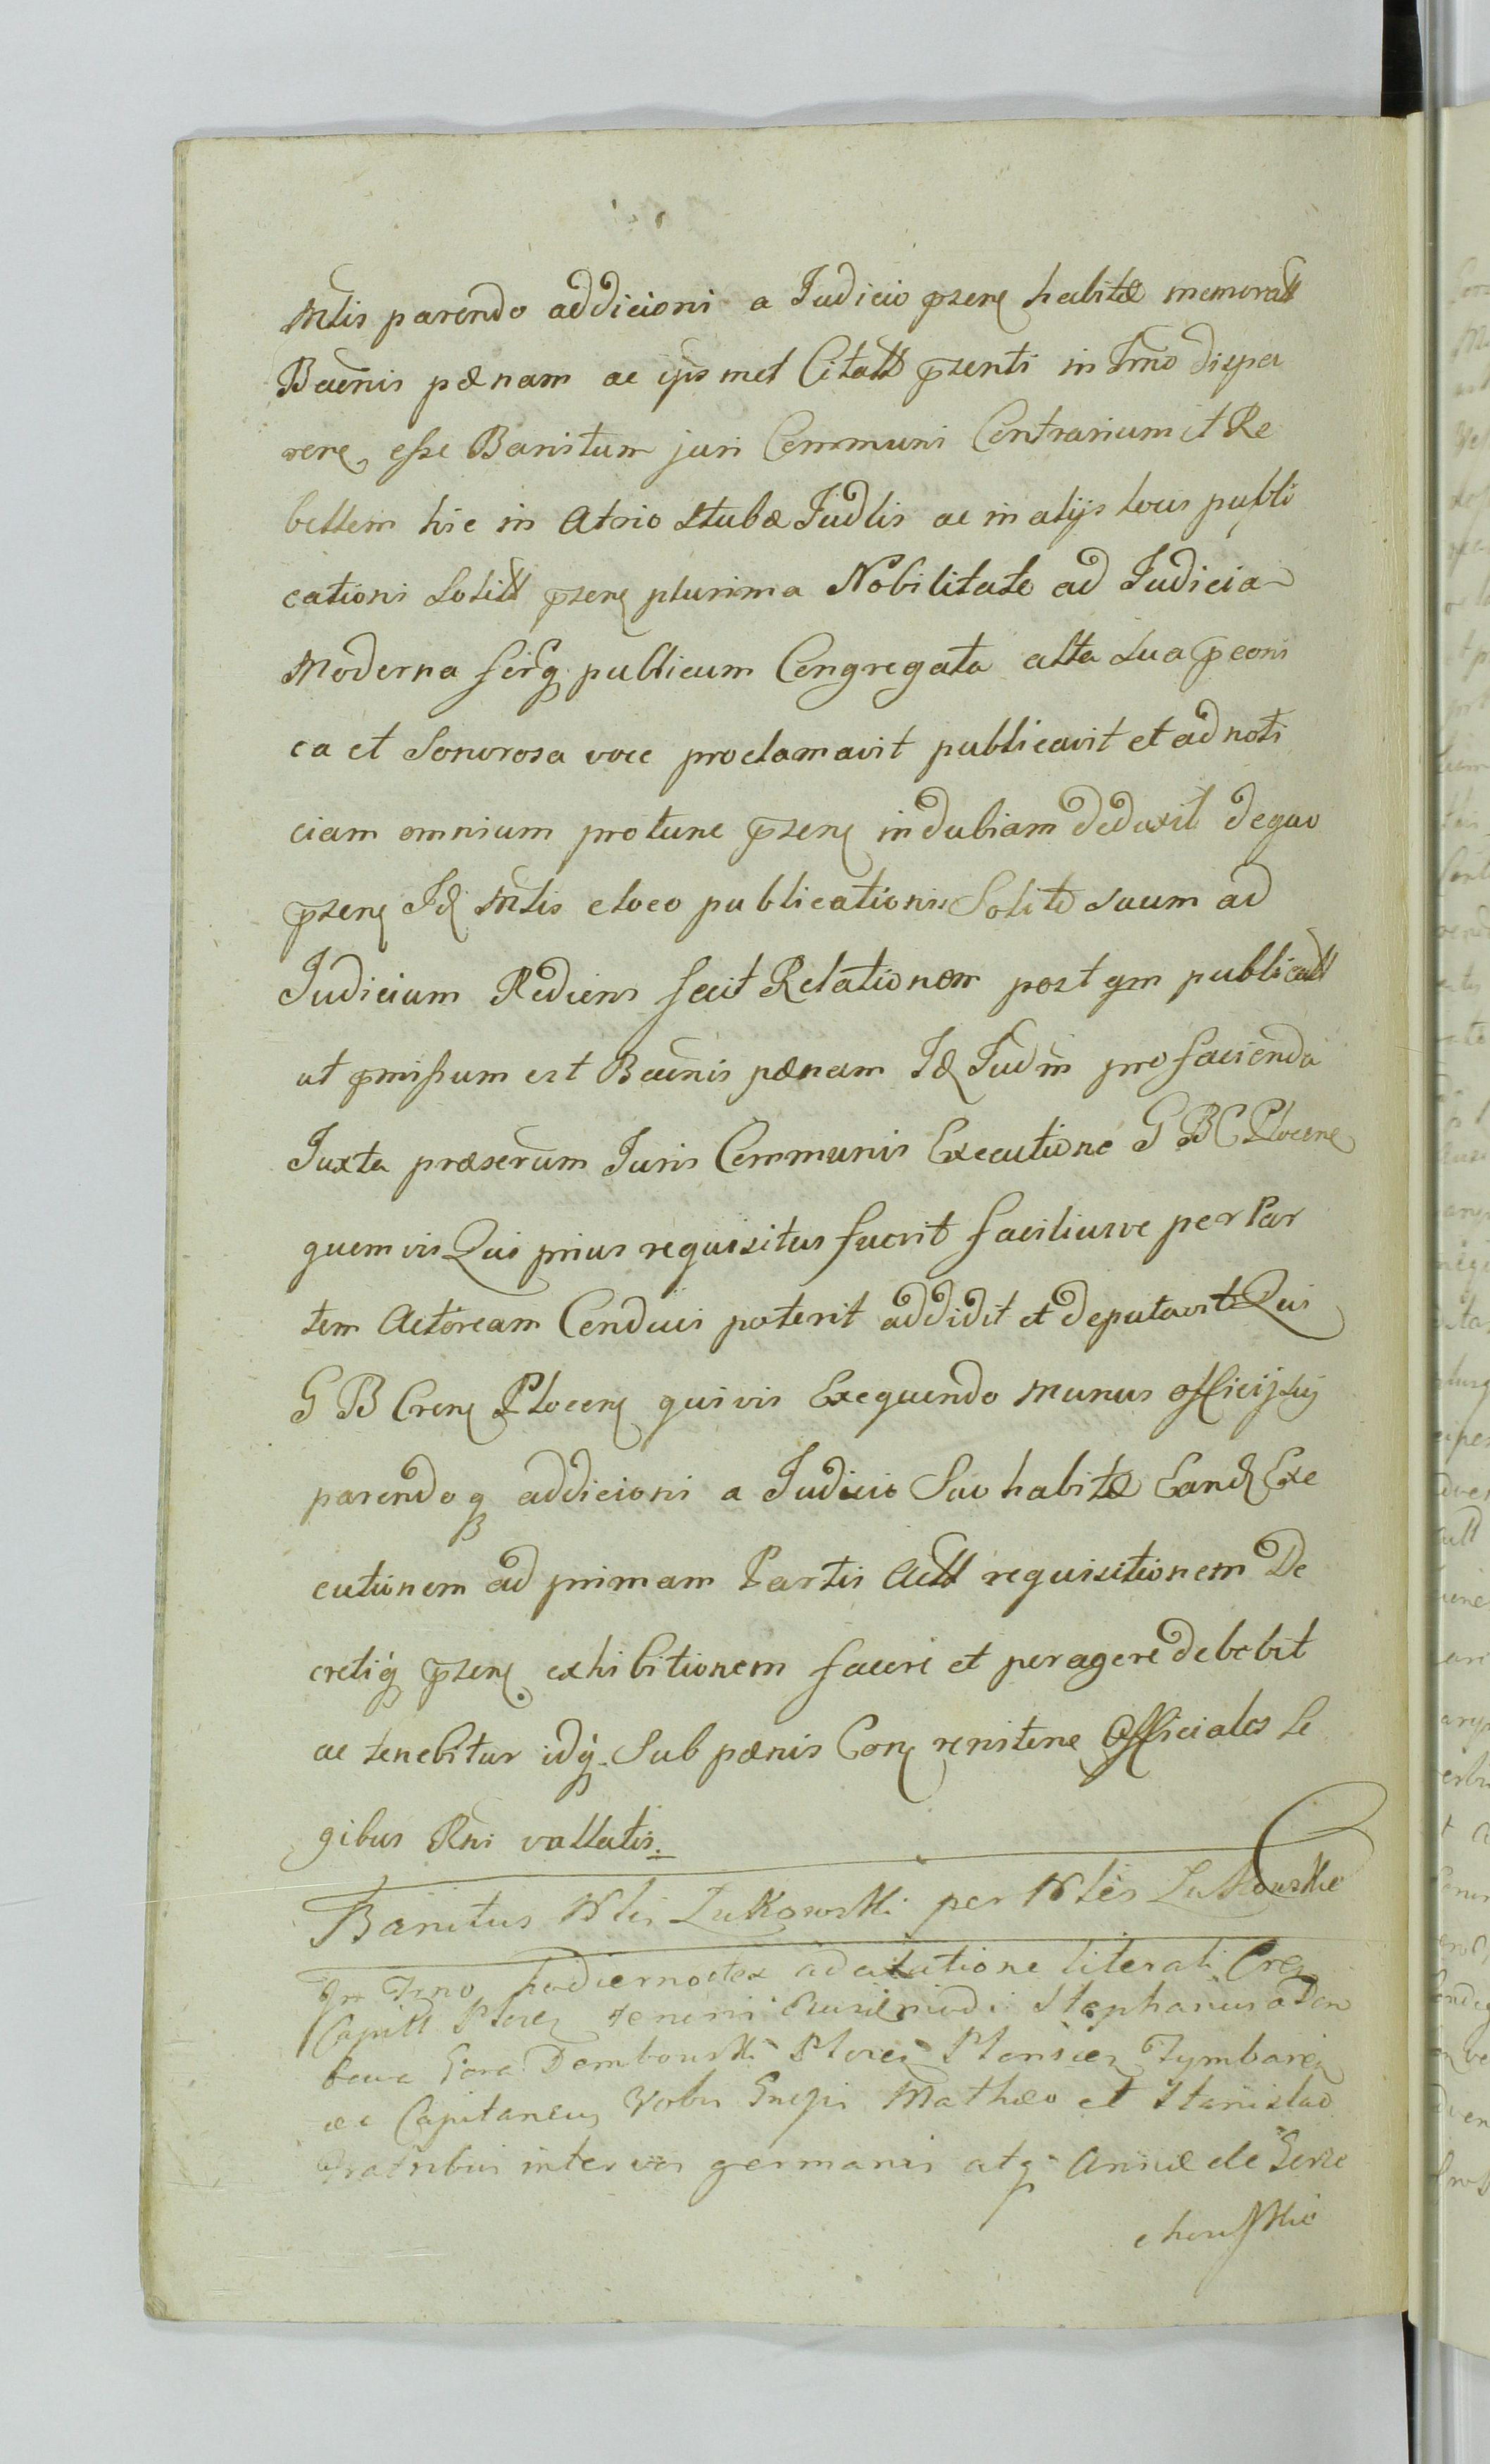 Mtlis parendo addicioni a Judicio przenę habitæ memoratt
Bacnis pænam ac ips met Citatt przenti in Tmo dispa
renę esse Banitum juri Communi Contrarium et Re
bellem hic in Atrio Stubæ Judlis ac in alijs locis publi
cationi Solitt przenę plurima Nobilitate ad Judicia
Moderna ferq publicum Congregata alta Sua pconi
ca et Sonorosa voce proclamavit publicavit et ad noti
ciam omnium protunc przenę indubiam deduxit de quo
przenę Id Mtlis e loco publicationis Solito Suum ad
Judicium Rediens fecit Relationem post qm publicatt
ut pmissum est Bacnis pænam Id Judm pro facienda
Juxta præscrum Juris Communis Executione G B C Plocenę
quemvis Qui prius requisitus fuerit faciliusve per Par
tem Actoream Conduci poterit addidit et deputavit Qui
G B Crenę Plocenę quivis Exequendo Munus officij Sui
parendoq addicioni a Judicio Suo habitæ Eand Exe
cutionem ad primam Partis Actt requisitionem De
cretiq przenę exhibitionem facere et peragere debebit
ac tenebitur idq Sub pænis Conę renitenę Officiales Le
gibus Rni vallatis.
Banitus Nlis Lukowski per Nles Lukowskie
In Tmo hodierno ex literati
Capitt Stephanus a Dem
bowa Gora Dembowski Plocen Plonscen Tymbaren
ac Capitaneus Vobis Gnpis Mathæo et Stanislao
Fratribus inter vos germanis atq Annæ de
chowskie